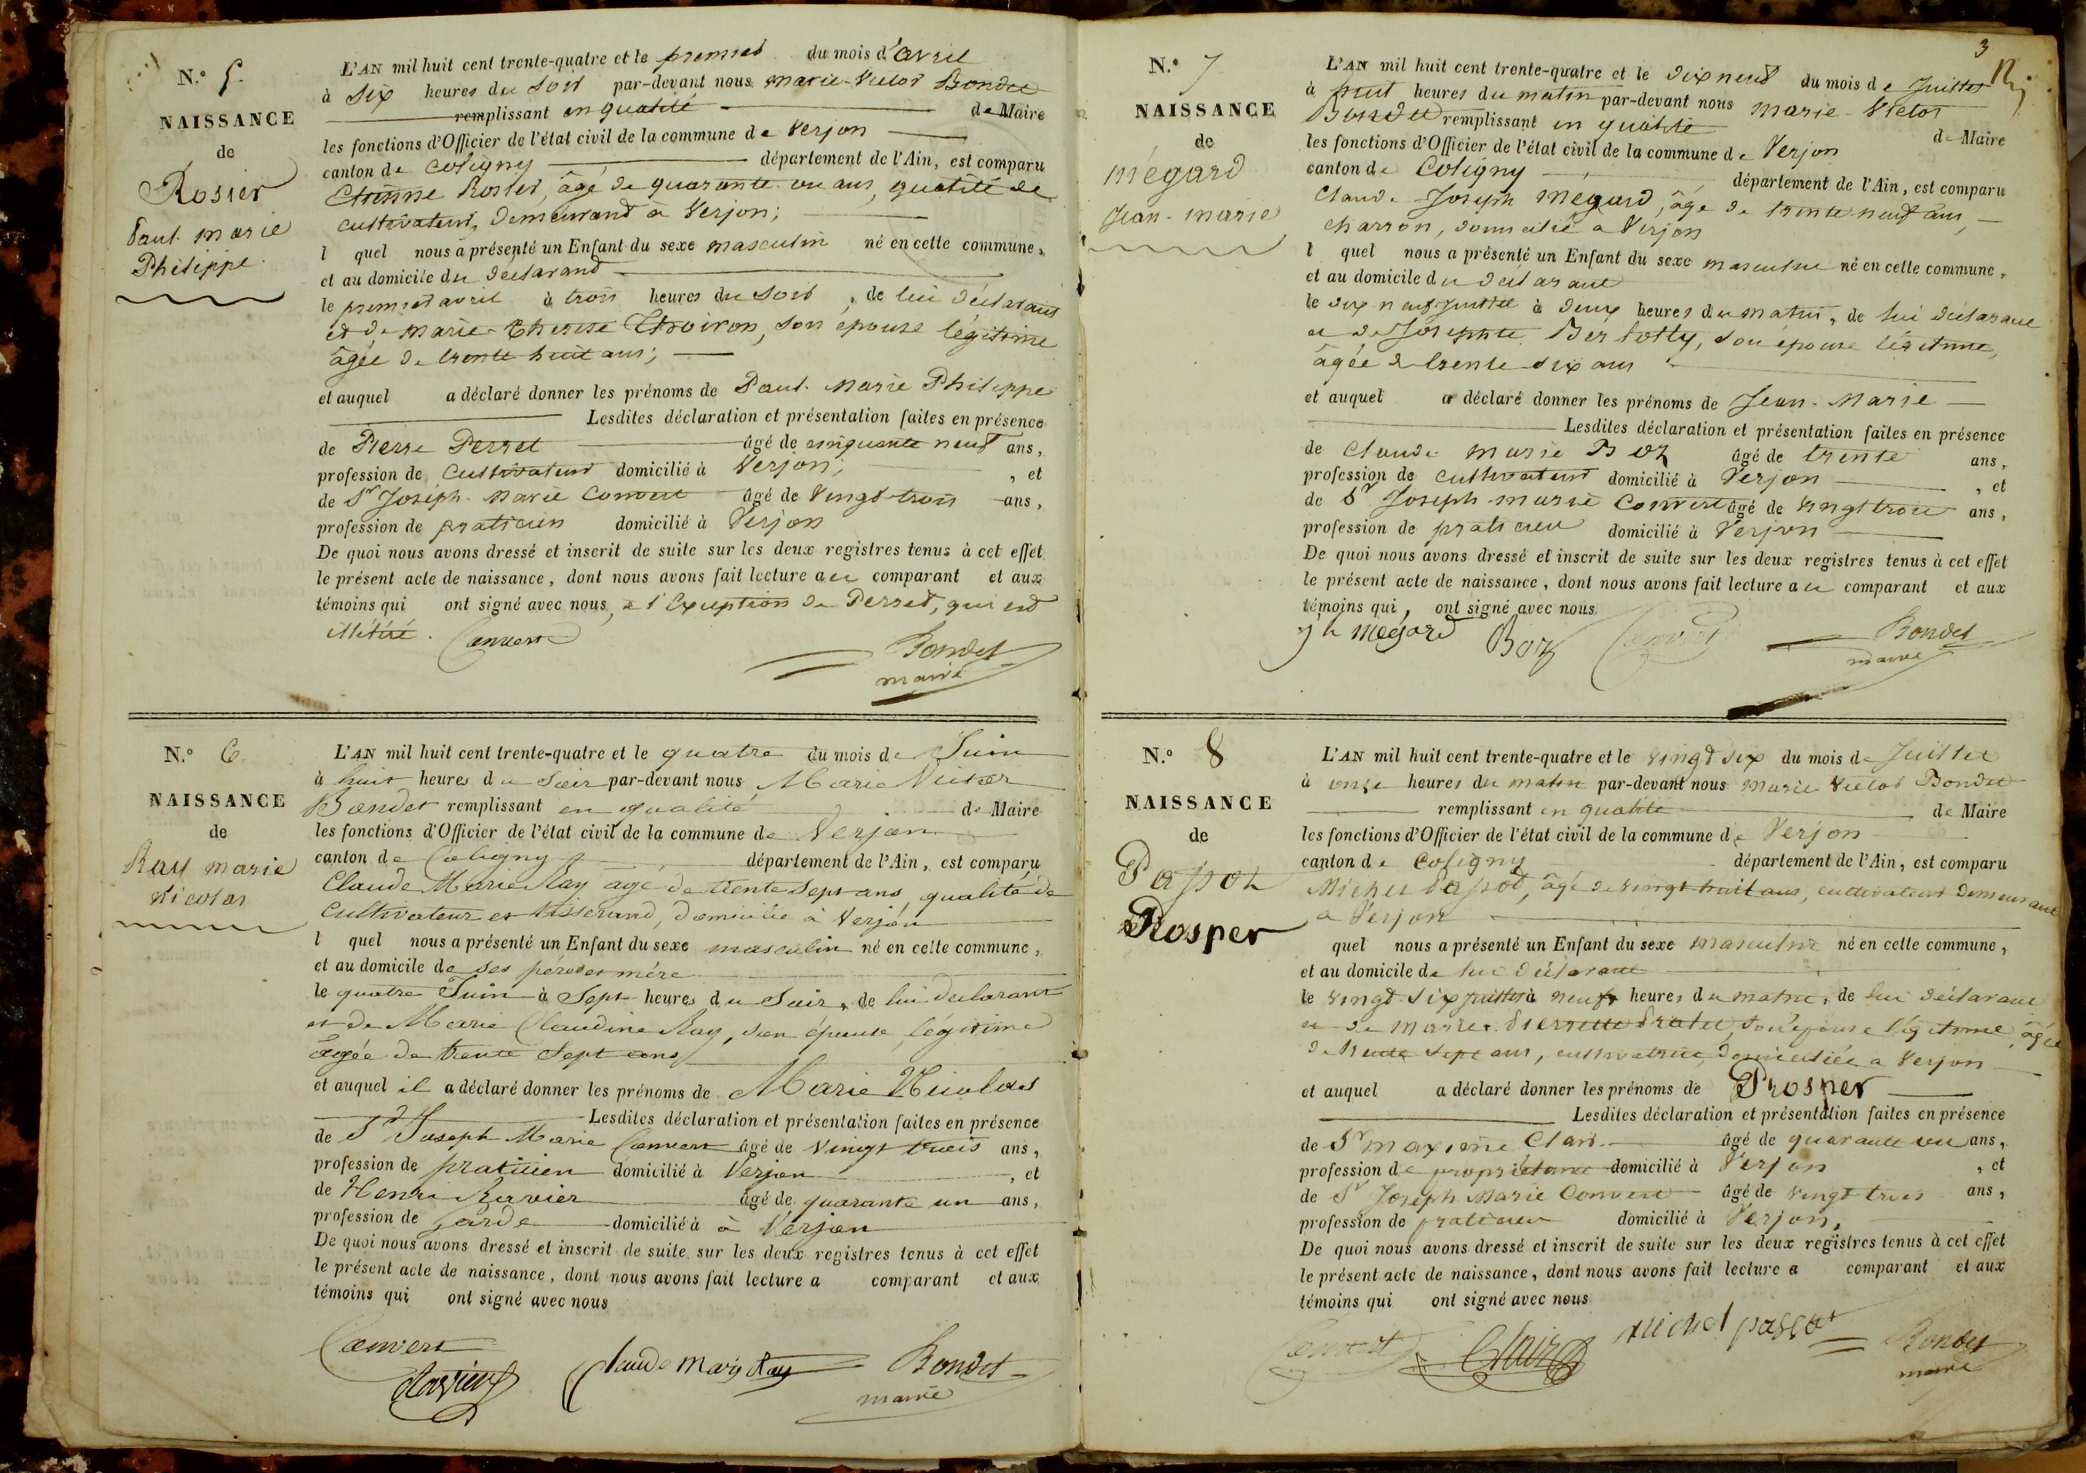 N.o 5.
NAISSANCE
de
Rosier
Paul. marie
Philippe.
L'AN mil huit cent trente-quatre et le premier du mois d'avril
à six heures du soir par-devant nous marie-Victor Bondet
remplissant en qualité de Maire
les fonctions d'Officier de l'état civil de la commune de Verjon
canton de Coligny département de l'Ain, est comparu
Etienne Rosier, âgé de quarante un ans, qualité de
cultivateur, demeurand à Verjon;
l quel nous a présenté un Enfant du sexe masculin né en cette commune,
et au domicile du déclarand
le premier avril à trois heures du soir, de lui déclarant
et de marie-Therese Thoiron, son épouse légitime
âgée de trente huit ans;
et auquel a déclaré donner les prénoms de Paul. Marie Philippe
Lesdites déclaration et présentation faites en présence
de Pierre Perret âgé de cinquante neuf ans,
profession de cultivateur domicilié à Verjon; , et
de Sr Joseph-Marie Convert âgé de vingt-trois ans,
profession de praticien domicilié à Verjon
De quoi nous avons dressé et inscrit de suite sur les deux registres tenus à cet effet
le présent acte de naissance, dont nous avons fait lecture au comparant et aux
témoins qui ont signé avec nous, à l'exception de Perret, qui est
illétiré.
Convert
Bondet
maire
N.o 6.
NAISSANCE
de
Ray marie
Nicolas
L'AN mil huit cent trente-quatre et le quatre du mois de Juin
à huit heures du soir par-devant nous Marie Victor
Bondet remplissant en qualité de Maire
les fonctions d'Officier de l'état civil de la commune de Verjon
canton de Coligny département de l'Ain, est comparu
Claude Marie Ray âgé de trente sept ans, qualité de
cultivateur et tisserand, domicilié à Verjon
l quel nous a présenté un Enfant du sexe masculin né en cette commune,
et au domicile de ses père et mère
le quatre Juin à sept heures du soir, de lui déclarant
et de Marie Claudine Ray, son épouse légitime
âgée de trente sept ans
et auquel il a déclaré donner les prénoms de Marie Nicolas
Lesdites déclaration et présentation faites en présence
de Sr Joseph Marie Convert âgé de vingt trois ans,
profession de praticien domicilié à Verjon , et
de Henri Rervier âgé de quarante un ans,
profession de garde domicilié à à Verjon
De quoi nous avons dressé et inscrit de suite sur les deux registres tenus à cet effet
le présent acte de naissance, dont nous avons fait lecture a comparant et aux
témoins qui ont signé avec nous
Convert
Claude Mary Ray
Bondet
maire
3
N.o 7
NAISSANCE
de
Mégard
Jean-Marie
L'AN mil huit cent trente-quatre et le dix neuf du mois de Juillet
à huit heures du matin par-devant nous Marie-Victor
Bondet remplissant en qualité de Maire
les fonctions d'Officier de l'état civil de la commune de Verjon
canton de Coligny département de l'Ain, est comparu
Claude-Joseph Mégard, âgé de trente neuf ans,
charron, domicilié a Verjon
l quel nous a présenté un Enfant du sexe masculin né en cette commune,
et au domicile du déclarant
le dix neuf Juillet à deux heures du matin, de lui déclarant
et de Josephte Berlotty, son épouse légitime,
âgée de trente six ans
et auquel a déclaré donner les prénoms de Jean-Marie
Lesdites déclaration et présentation faites en présence
de Claude Marie Boz âgé de trente ans,
profession de cultivateur domicilié à Verjon , et
de Sr Joseph marie Convert âgé de vingt trois ans,
profession de praticien domicilié à Verjon
De quoi nous avons dressé et inscrit de suite sur les deux registres tenus à cet effet
le présent acte de naissance, dont nous avons fait lecture au comparant et aux
témoins qui, ont signé avec nous
Mégard Boz Convert Bondet
maire
N.o 8
NAISSANCE
de
Pajot
Prosper
L'AN mil huit cent trente-quatre et le vingt six du mois de Juillet
à onze heures du matin par-devant nous Marie Victor Bondet
remplissant en qualité de Maire
les fonctions d'Officier de l'état civil de la commune de Verjon
canton de Coligny département de l'Ain, est comparu
Michel Pajot, âgé de vingt huit ans, cultivateur demeurant
a Verjon
quel nous a présenté un Enfant du sexe masculin né en cette commune,
et au domicile de lui déclarant
le vingt six juillet à neuf heures du matin, de lui déclarant
et de Marie. Pierrette son épouse légitime, âgée
de trente sept ans, cultivatrice, domiciliée a Verjon
et auquel a déclaré donner les prénoms de Prosper
Lesdites déclaration et présentation faites en présence
de Sr maxime Clair âgé de quarante un ans,
profession de propriétaire domicilié à Verjon , et
de Sr Joseph Marie Convert âgé de vingt trois ans,
profession de praticien domicilié à Verjon,
De quoi nous avons dressé et inscrit de suite sur les deux registres tenus à cet effet
le présent acte de naissance, dont nous avons fait lecture a comparant et aux
témoins qui ont signé avec nous
Convert Clair michel Bondet
maire